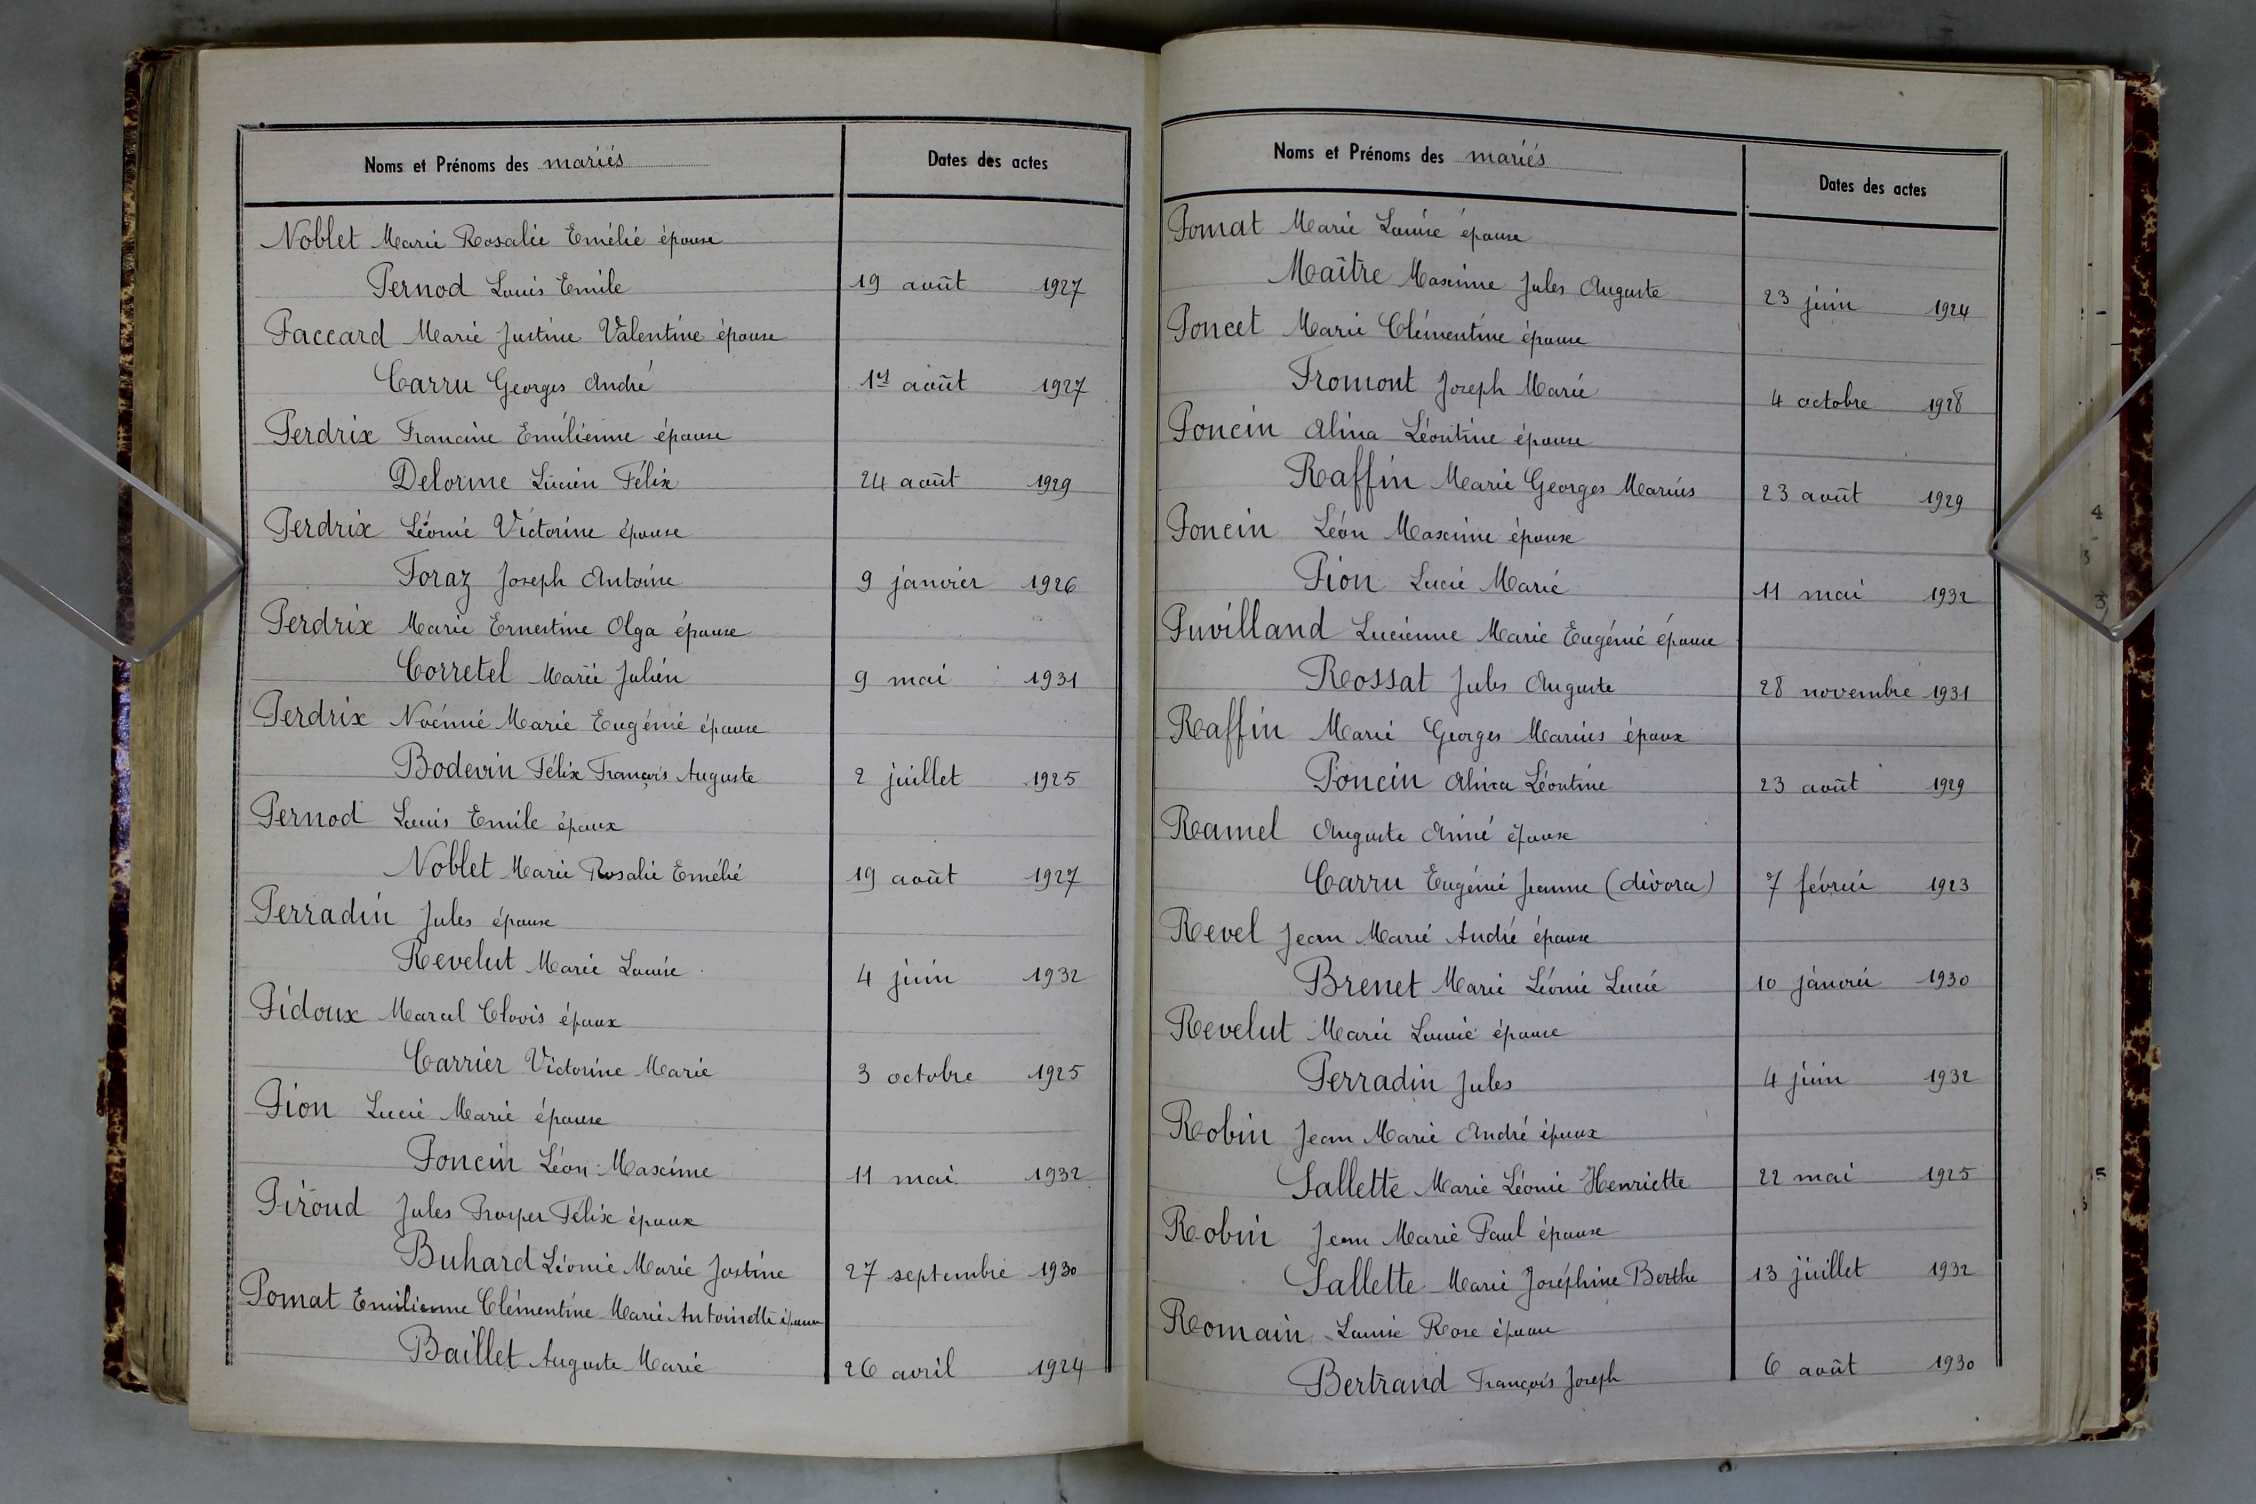 Noms et Prénoms des mariés
Dates des actes
Noblet Marie Rosalie Emélie épouse
Pernod Louis Emile 19 août 1927
Paccard Marie Justine Valentine épouse
Carru Georges André 1er août 1927
Perdrix Francine Emilienne épouse
Delorme Lucien Félix 24 août 1929
Perdrix Léonie Victorine épouse
Foraz Joseph Antoine 9 janvier 1926
Perdrix Marie Ernestine Olga épouse
Corretel Marie Julien 9 mai 1931
Perdrix Noémie Marie Eugénie épouse
Bodevin Félix François Auguste 2 juillet 1925
Pernod Louis Emile époux
Noblet Marie Rosalie Emélie 19 août 1927
Perradin Jules épouse
Revelut Marie Louise 4 juin 1932
Pidoux Marcel Clovis époux
Carrier Victorine Marie 3 octobre 1925
Pion Lucie Marie épouse
Poncin Léon Maxime 11 mai 1932
Piroud Jules Prosper Félix époux
Buhard Léonie Marie Justine 27 septembre 1930
Pomat Emilienne Clémentine Marie Antoinette épouse
Baillet Auguste Marie 26 avril 1924
Noms et Prénoms des mariés
Dates des actes
Pomat Marie Louise épouse
Maître Maxime Jules Auguste 23 juin 1924
Poncet Marie Clémentine épouse
Fromont Joseph Marie 4 octobre 1928
Poncin Alina Léontine épouse
Raffin Marie Georges Marius 23 août 1929
Poncin Léon Maxime épouse
Pion Lucie Marie 11 mai 1932
Puvilland Lucienne Marie Eugénie épouse
Rossat Jules Auguste 28 novembre 1931
Raffin Marie Georges Marius époux
Poncin Alina Léontine 23 août 1929
Ramel Auguste Aimé épouse
Carru Eugénie Jeanne (divorce) 7 février 1923
Revel Jean Marie André épouse
Brenet Marie Léonie Lucie 10 janvier 1930
Revelut Marie Louise épouse
Perradin Jules 4 juin 1932
Robin Jean Marie André époux
Sallette Marie Léonie Henriette 22 mai 1925
Robin Jean Marie Paul épouse
Sallette Marie Joséphine Berthe 13 juillet 1932
Romain Louise Rose épouse
Bertrand François Joseph 6 août 1930